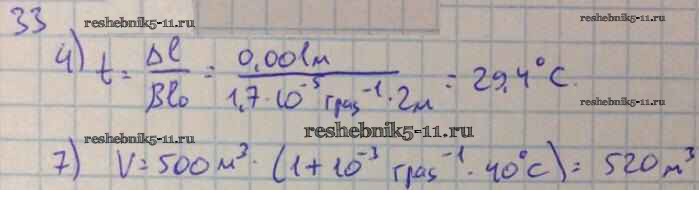 33
reshebnik5-11.ru reshebnik5-11.ru
4) t = Δl / Bl₀ = 0,001м / 1,7·10⁻⁵ град⁻¹·2м = 29,4°C.
reshebnik5-11.ru
reshebnik5-11.ru reshebnik5-11.ru
7) V = 500м³·(1+10⁻³ град⁻¹·40°C) = 520м³
reshebnik5-11.ru reshebnik5-11.ru